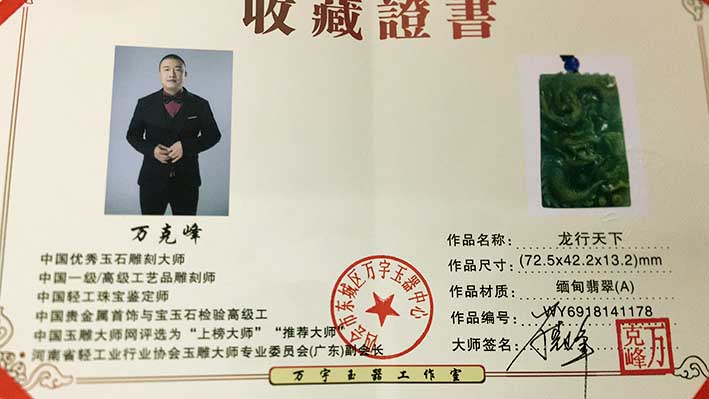 收藏證書
万克峰
中国优秀玉石雕刻大师
中国一级/高级工艺品雕刻师
中国轻工珠宝鉴定师
中国贵金属首饰与宝玉石检验高级工
中国玉雕大师网评选为“上榜大师”“推荐大师”
河南省轻工业行业协会玉雕大师专业委员会(广东)副会长
四会市东城区万宇玉器中心
作品名称: 龙行天下
作品尺寸: (72.5x42.2x13.2)mm
作品材质: 缅甸翡翠(A)
作品编号: WY6918141178
大师签名:
万克峰
万宇玉器工作室